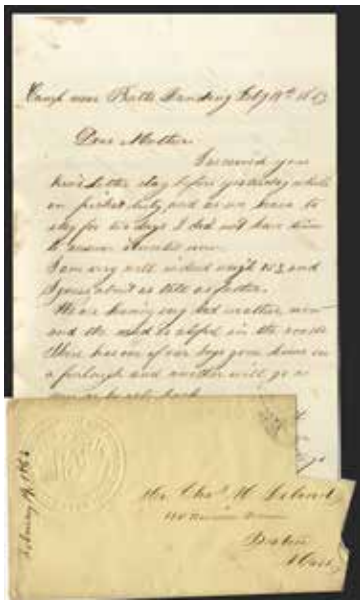 Camp near Belle Landing Feby 19th 1863
Dear Mother
I received your
kind letter day before yesterday while
on picket duty, and as we have to
stay for six days I did not have time
to answer it until now.
I am very well indeed weigh 153 and
I guess about as tall as father.
We are having very bad weather now
and the mud is in the roads
There has one of our boys gone home on
a furlough and another will go as
soon as he gets back
February 19, 1863
Mr. Chas. H.
Boston
Mass